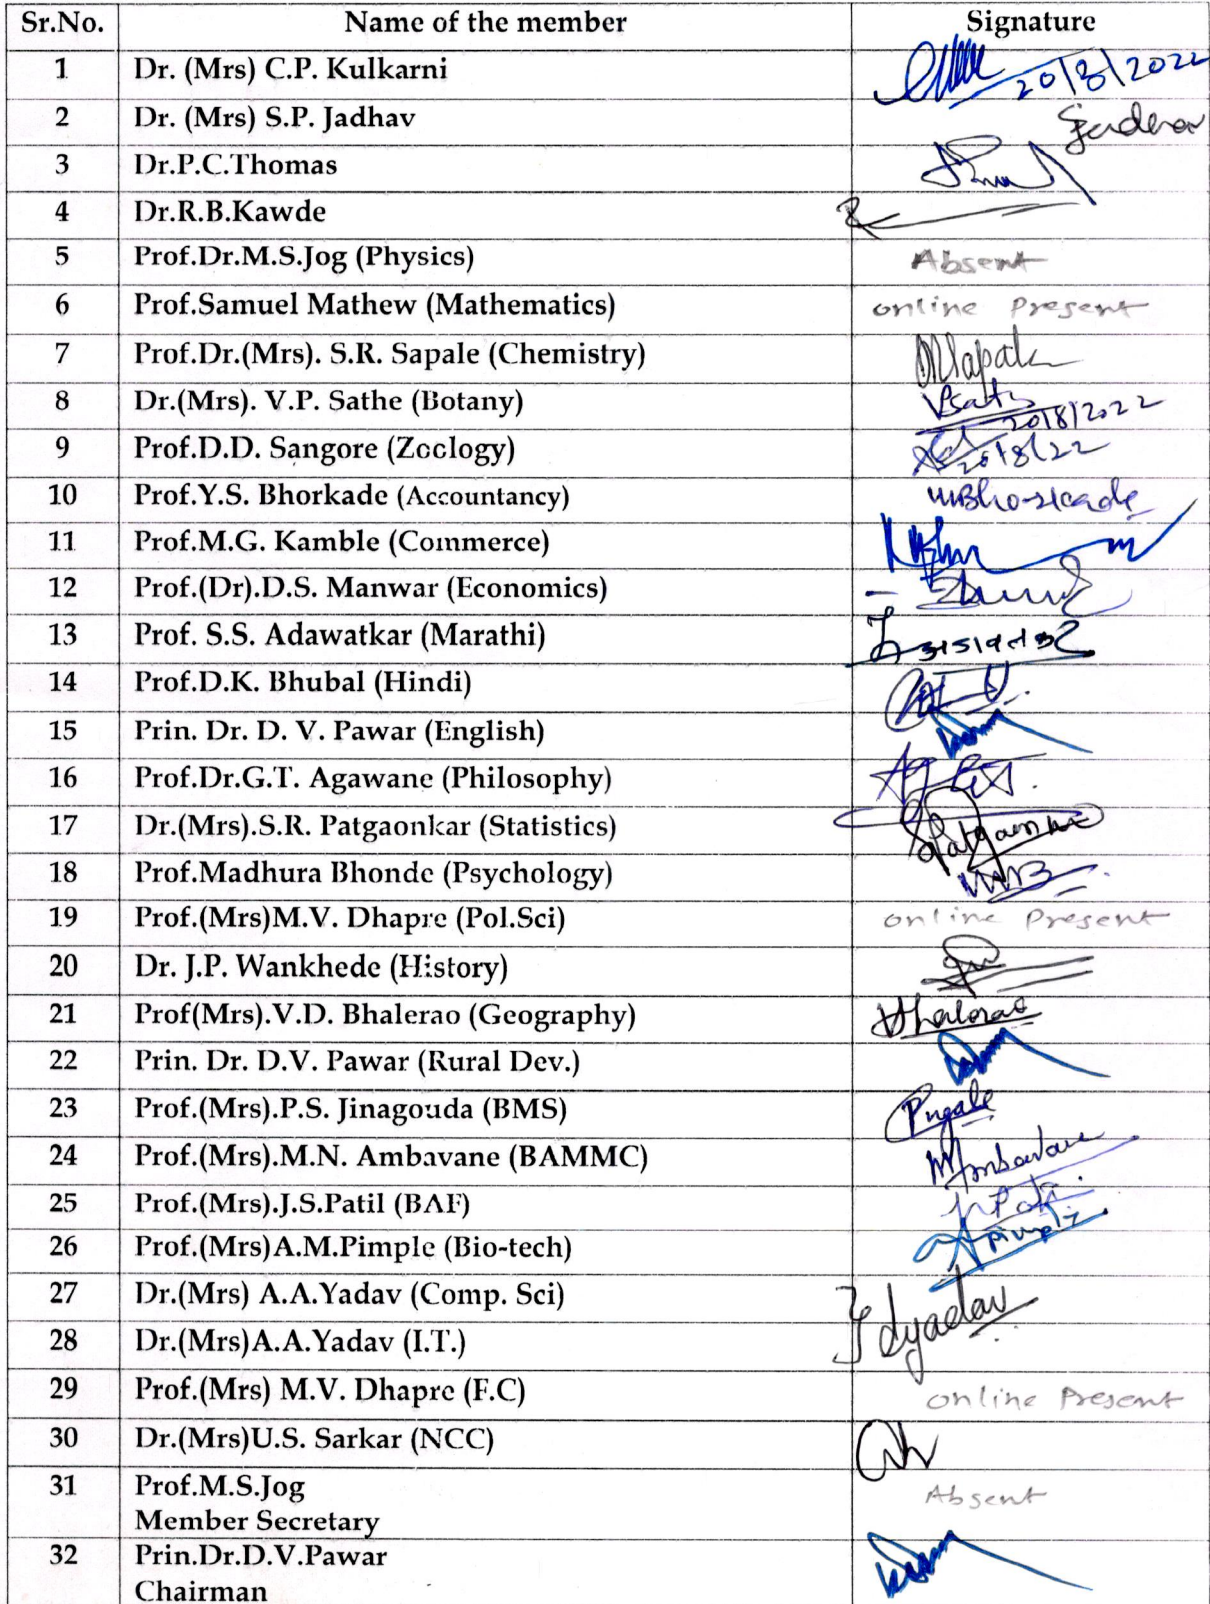 Sr.No. Name of the member Signature
1 Dr. (Mrs) C.P. Kulkarni 20/8/2022
2 Dr. (Mrs) S.P. Jadhav
3 Dr.P.C.Thomas
4 Dr.R.B.Kawde
5 Prof.Dr.M.S.Jog (Physics) Absent
6 Prof.Samuel Mathew (Mathematics) online Present
7 Prof.Dr.(Mrs). S.R. Sapale (Chemistry)
8 Dr.(Mrs). V.P. Sathe (Botany) 20/8/2022
9 Prof.D.D. Sangore (Zoology) 20/8/22
10 Prof.Y.S. Bhorkade (Accountancy)
11 Prof.M.G. Kamble (Commerce)
12 Prof.(Dr).D.S. Manwar (Economics)
13 Prof. S.S. Adawatkar (Marathi)
14 Prof.D.K. Bhubal (Hindi)
15 Prin. Dr. D. V. Pawar (English)
16 Prof.Dr.G.T. Agawane (Philosophy)
17 Dr.(Mrs).S.R. Patgaonkar (Statistics)
18 Prof.Madhura Bhonde (Psychology)
19 Prof.(Mrs)M.V. Dhapre (Pol.Sci) online Present
20 Dr. J.P. Wankhede (History)
21 Prof(Mrs).V.D. Bhalerao (Geography) Bhalerao
22 Prin. Dr. D.V. Pawar (Rural Dev.)
23 Prof.(Mrs).P.S. Jinagouda (BMS)
24 Prof.(Mrs).M.N. Ambavane (BAMMC) Ambavane
25 Prof.(Mrs).J.S.Patil (BAF)
26 Prof.(Mrs)A.M.Pimple (Bio-tech)
27 Dr.(Mrs) A.A.Yadav (Comp. Sci)
28 Dr.(Mrs)A.A.Yadav (I.T.)
29 Prof.(Mrs) M.V. Dhapre (F.C) online Present
30 Dr.(Mrs)U.S. Sarkar (NCC)
31 Prof.M.S.Jog Absent
Member Secretary
32 Prin.Dr.D.V.Pawar
Chairman